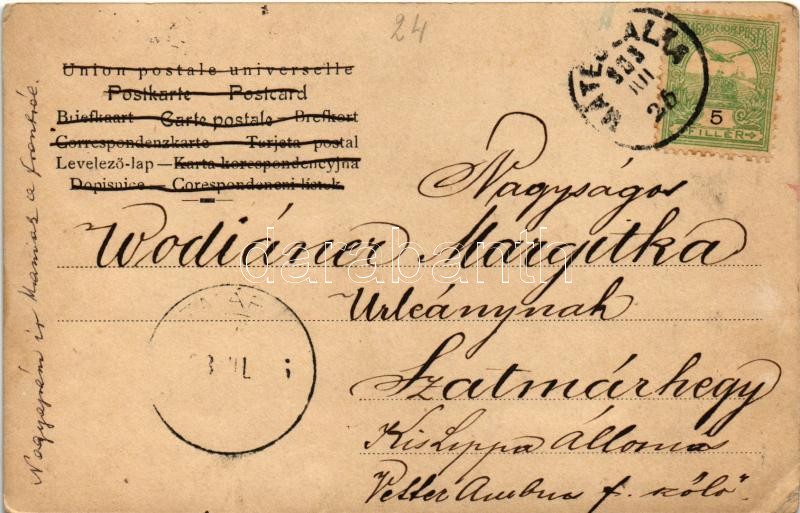 24
Union postale universelle
Postkarte Postcard
Briefkaart Carte postale Brefkort
Correspondenzkarte Tarjeta postal
Levelező-lap — Karta korespondencyjna
Dopisnice — Corespondencni listek
MÁTÉSZALKA
903
26
MAGYAR KIR. POSTA
5
FILLÉR
Nagyságos
Wodiáner Margitka
Urleánynak
Szatmárhegy
Kislippa Állomás
Vetter f. szőlő"
Nagyapám ir Mamának a frontról.
darabanth